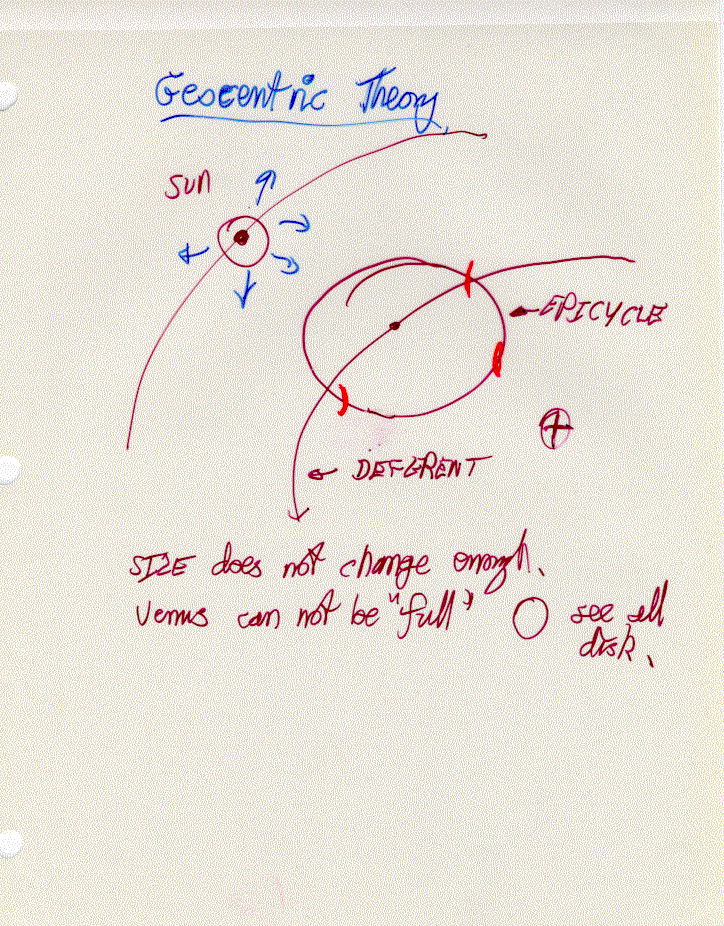 Geocentric Theory
SUN
EPICYCLE
DEFERENT
SIZE does not change enough.
Venus can not be "full" see all
disk.